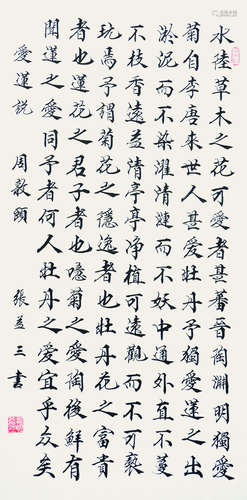 水陸草木之花可愛者甚蕃晉陶淵明獨愛
菊自李唐來世人甚愛牡丹予獨愛蓮之出
淤泥而不染濯清漣而不妖中通外直不蔓
不枝香遠益清亭亭淨植可遠觀而不可褻
玩焉予謂菊花之隱逸者也牡丹花之富貴
者也蓮花之君子者也噫菊之愛陶後鮮有
聞蓮之愛同予者何人牡丹之愛宜乎眾矣
愛蓮説 周敦頤 張益三書